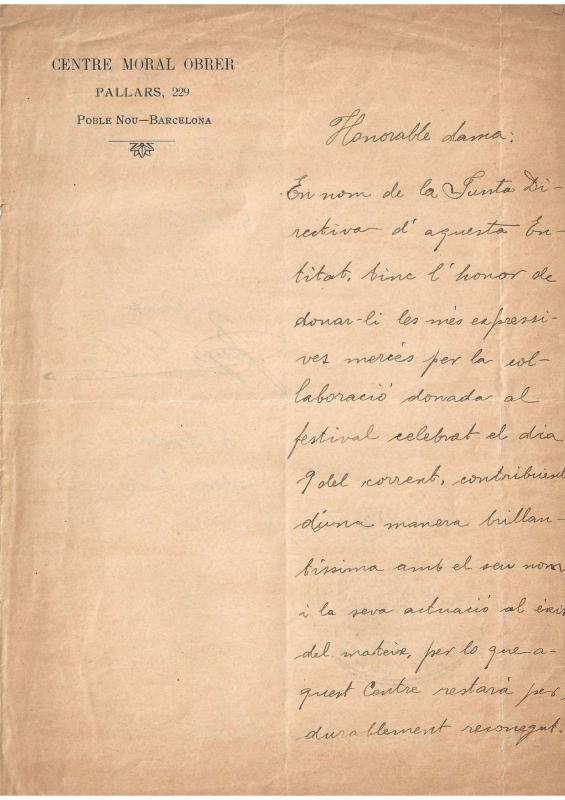 CENTRE MORAL OBRER
PALLARS, 229
POBLE NOU—BARCELONA
Honorable dama:
En nom de la Junta Di-
rectiva d'aquesta En-
titat, tinc l'honor de
donar-li les més expressi-
ves mercés per la col-
laboració donada al
festival celebrat el dia
9 del corrent, contribuint
d'una manera brillan-
tíssima amb el seu nom
i la seva actuació al éxit
del mateix, per lo que a-
quest Centre restará per-
durablement reconegut.